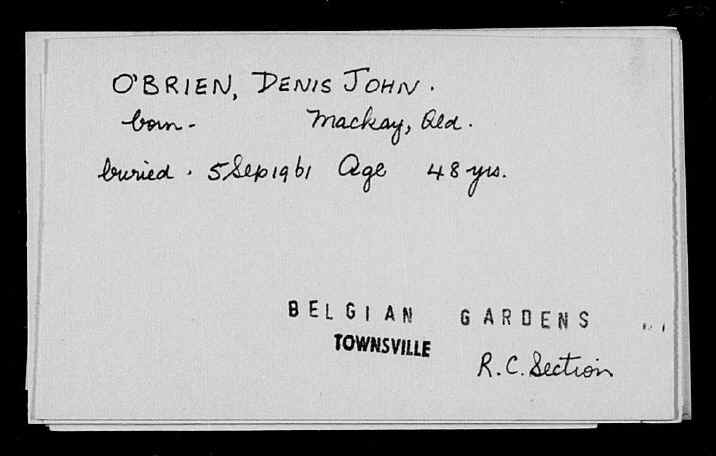 O'BRIEN, DENIS JOHN.
born - Mackay, Qld.
buried. 5 Sep 1961 Age 48 yrs.
BELGIAN GARDENS
TOWNSVILLE
R.C. Section